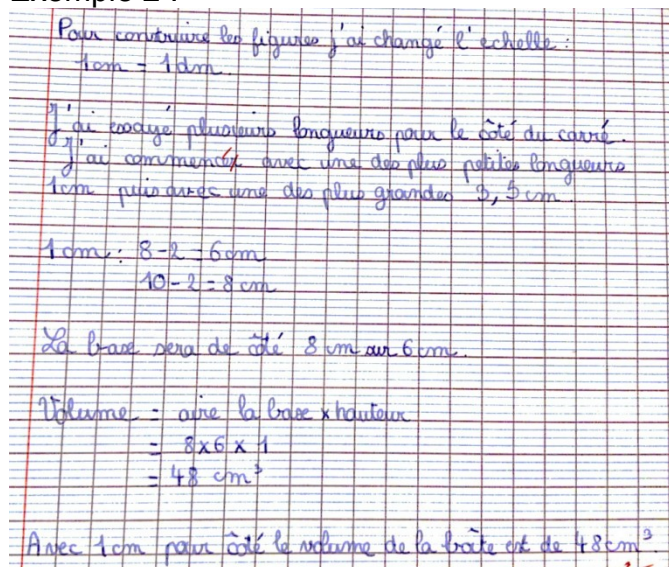 Pour construire les figures j'ai changé l'echelle :
1cm = 1dm.
J'ai essayé plusieurs longueurs pour le côté du carré.
J'ai commencé avec une des plus petites longueurs
1cm puis avec une des plus grandes 3,5 cm.
1 cm : 8-2 = 6cm
10-2 = 8 cm
La base sera de côté 8 cm sur 6 cm.
Volume = aire la base x hauteur
= 8x6 x 1
= 48 cm³
Avec 1cm pour côté le volume de la boîte est de 48cm³